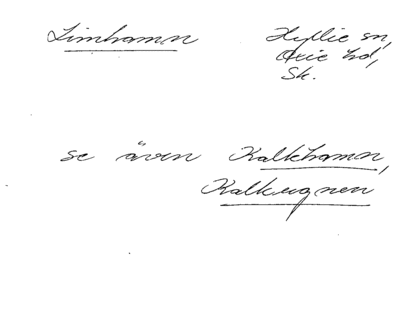 Limhamn Hyllie sn,
Oxie hd,
Sk.
se även Kalkhamn,
Kalkugnen